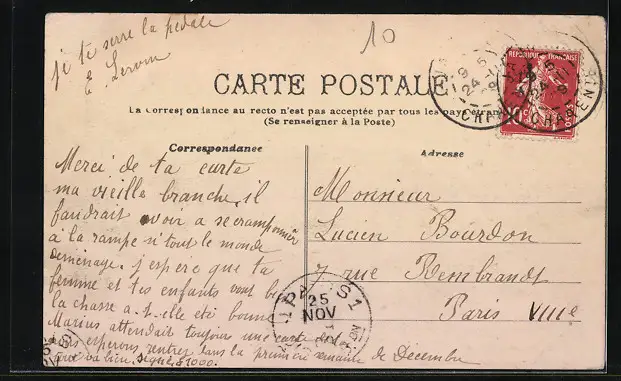 je te serre la pédale
E. Leroux
10
REPUBLIQUE FRANÇAISE
10c
CARTE POSTALE
La Correspondance au recto n'est pas acceptée par tous les pays étrangers
(Se renseigner à la Poste)
Correspondance
Adresse
Merci de ta carte
ma vieille branche, il
faudrait voir a se cramponner
à la rampe si tout le monde
déménage. j'espère que ta
femme et tes enfants vont bien
la chasse a-t-elle été bonne
Marius attendait toujours une carte
nous espérons rentrer dans la première semaine de Décembre
tout va bien.
Monsieur
Lucien Bourdon
7 rue Rembrandt
Paris VIIIe
25
NOV